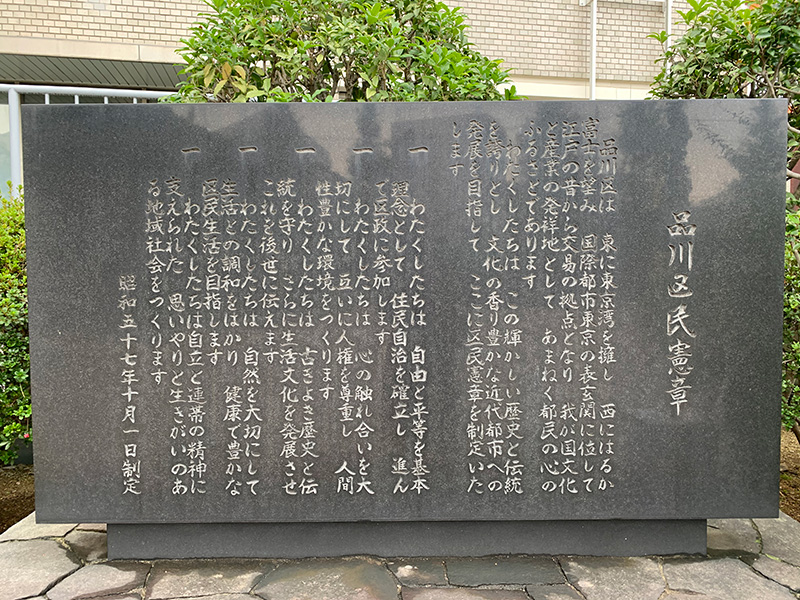 品川区民憲章
品川区は　東に東京湾を擁し　西にはるか
富士を望み　国際都市東京の表玄関に位して
江戸の昔から交易の拠点となり　我が国文化
と産業の発祥地として　あまねく都民の心の
ふるさとであります
わたくしたちは　この輝かしい歴史と伝統
を誇りとし　文化の香り豊かな近代都市への
発展を目指して　ここに区民憲章を制定いた
します
一　わたくしたちは　自由と平等を基本
理念として　住民自治を確立し　進ん
で区政に参加します
一　わたくしたちは　心の触れ合いを大
切にして　互いに人権を尊重し　人間
性豊かな環境をつくります
一　わたくしたちは　古きよき歴史と伝
統を守り　さらに生活文化を発展させ
これを後世に伝えます
一　わたくしたちは　自然を大切にして
生活との調和をはかり　健康で豊かな
区民生活を目指します
一　わたくしたちは自立と連帯の精神に
支えられた　思いやりと生きがいのあ
る地域社会をつくります
昭和五十七年十月一日制定